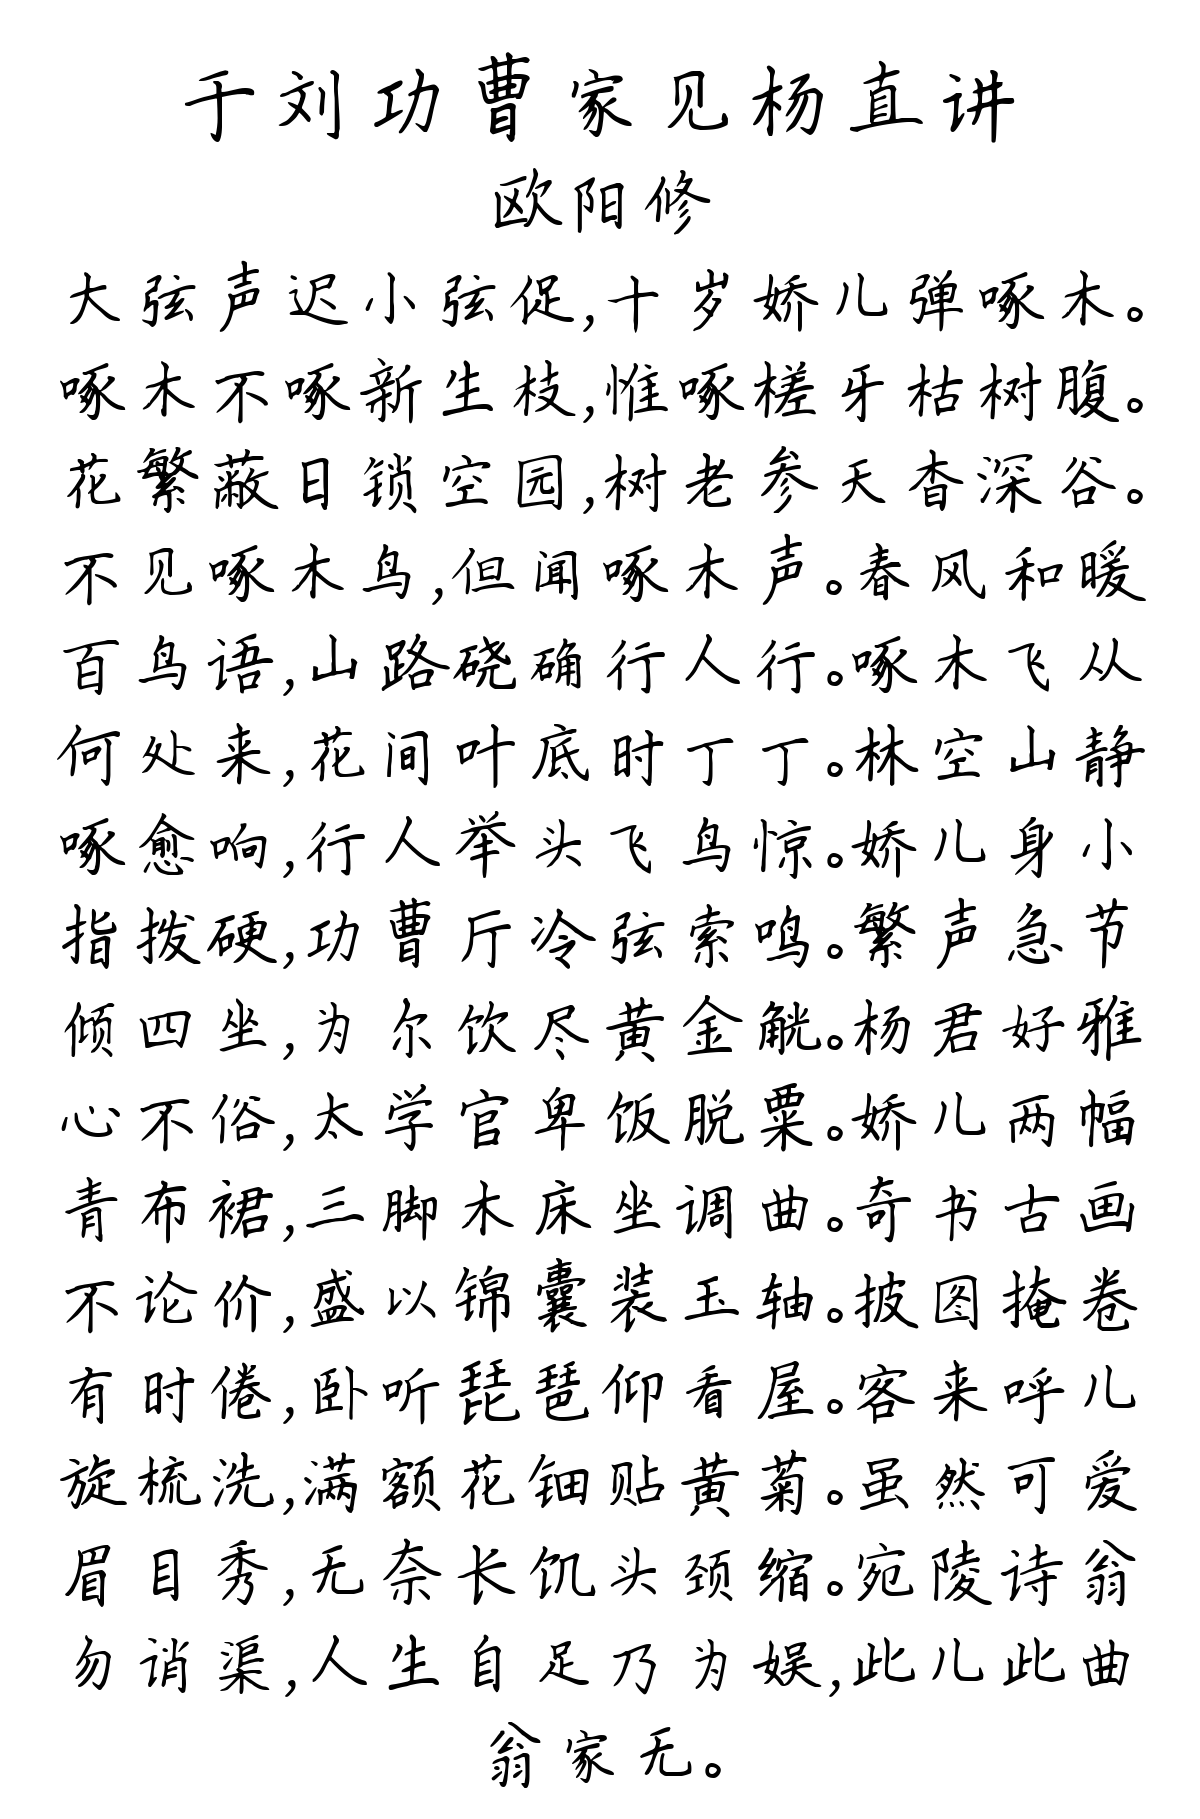 于刘功曹家见杨直讲
欧阳修
大弦声迟小弦促,十岁娇儿弹啄木。
啄木不啄新生枝,惟啄槎牙枯树腹。
花繁蔽日锁空园,树老参天杳深谷。
不见啄木鸟,但闻啄木声。春风和暖
百鸟语,山路硗确行人行。啄木飞从
何处来,花间叶底时丁丁。林空山静
啄愈响,行人举头飞鸟惊。娇儿身小
指拨硬,功曹厅冷弦索鸣。繁声急节
倾四坐,为尔饮尽黄金觥。杨君好雅
心不俗,太学官卑饭脱粟。娇儿两幅
青布裙,三脚木床坐调曲。奇书古画
不论价,盛以锦囊装玉轴。披图掩卷
有时倦,卧听琵琶仰看屋。客来呼儿
旋梳洗,满额花钿贴黄菊。虽然可爱
眉目秀,无奈长饥头颈缩。宛陵诗翁
勿诮渠,人生自足乃为娱,此儿此曲
翁家无。